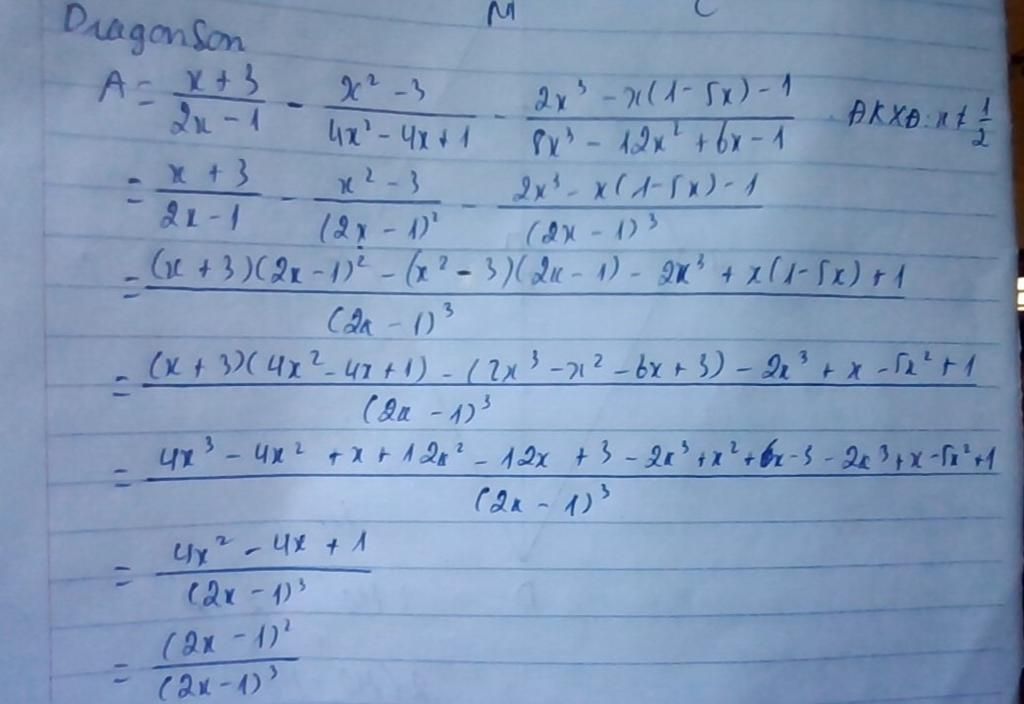 M C
DragonSon
A = \frac{x+3}{2x-1} - \frac{x^2-3}{4x^2-4x+1} - \frac{2x^3-x(1-5x)-1}{8x^3-12x^2+6x-1} ĐKXĐ: x ≠ \frac{1}{2}
= \frac{x+3}{2x-1} - \frac{x^2-3}{(2x-1)^2} - \frac{2x^3-x(1-5x)-1}{(2x-1)^3}
= \frac{(x+3)(2x-1)^2-(x^2-3)(2x-1)-2x^3+x(1-5x)+1}{(2x-1)^3}
= \frac{(x+3)(4x^2-4x+1)-(2x^3-x^2-6x+3)-2x^3+x-5x^2+1}{(2x-1)^3}
= \frac{4x^3-4x^2+x+12x^2-12x+3-2x^3+x^2+6x-3-2x^3+x-5x^2+1}{(2x-1)^3}
= \frac{4x^2-4x+1}{(2x-1)^3}
= \frac{(2x-1)^2}{(2x-1)^3}